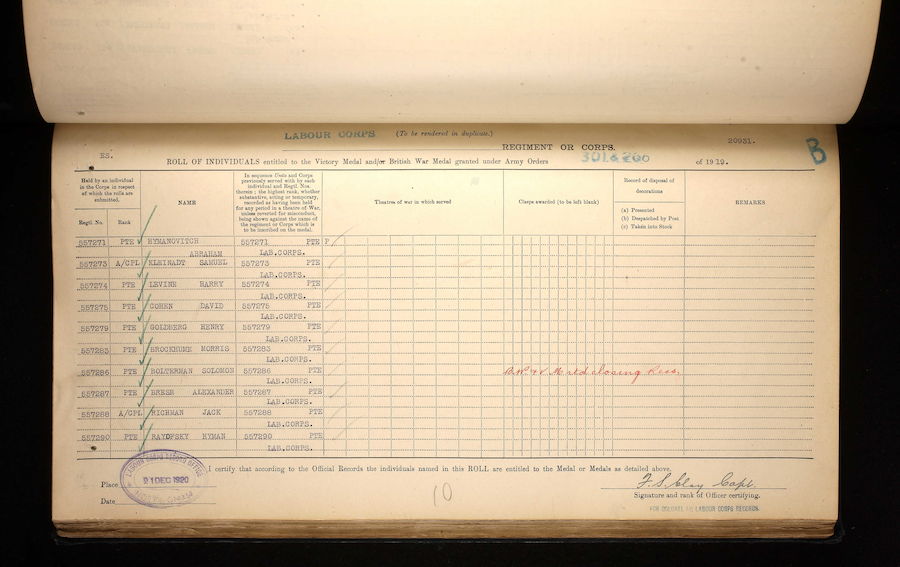 LABOUR CORPS (To be rendered in duplicate.)
REGIMENT OR CORPS. 20931. B
RS. ROLL OF INDIVIDUALS entitled to the Victory Medal and/or British War Medal granted under Army Orders 301 & 266 of 1919.
Held by an individual in the Corps in respect of which the rolls are submitted.
Regtl. No. Rank
NAME
In sequence Units and Corps previously served with by each individual and Regtl. Nos. therein; the highest rank, whether substantive, acting or temporary, recorded as having been held for any period in a theatre of War, unless reverted for misconduct, being shown against the name of the regiment or Corps which is to be inscribed on the medal.
Theatres of war in which served
Clasps awarded (to be left blank)
Record of disposal of decorations
(a) Presented
(b) Despatched by Post
(c) Taken into Stock
REMARKS
557271 PTE HYMANOVITCH 557271 PTE F
ABRAHAM LAB.CORPS.
557273 A/CPL KLEINADT SAMUEL 557273 PTE
LAB.CORPS.
557274 PTE LEVINE HARRY 557274 PTE
LAB.CORPS.
557275 PTE COHEN DAVID 557275 PTE
LAB.CORPS.
557279 PTE GOLDBERG HENRY 557279 PTE
LAB.CORPS.
557283 PTE BROCKHUME MORRIS 557283 PTE
LAB.CORPS.
557286 PTE BOLTERMAN SOLOMON 557286 PTE B.W. & V. M retd closing Recs.
LAB.CORPS.
557287 PTE BRESH ALEXANDER 557287 PTE
LAB.CORPS.
557288 A/CPL RICHMAN JACK 557288 PTE
LAB.CORPS.
557290 PTE RAYOFSKY HYMAN 557290 PTE
LAB.CORPS.
I certify that according to the Official Records the individuals named in this ROLL are entitled to the Medal or Medals as detailed above.
LABOUR CORPS RECORD OFFICE
21 DEC 1920
Place
Date
10
F.S. Clay Capt.
Signature and rank of Officer certifying.
FOR COLONEL I/C LABOUR CORPS RECORDS.